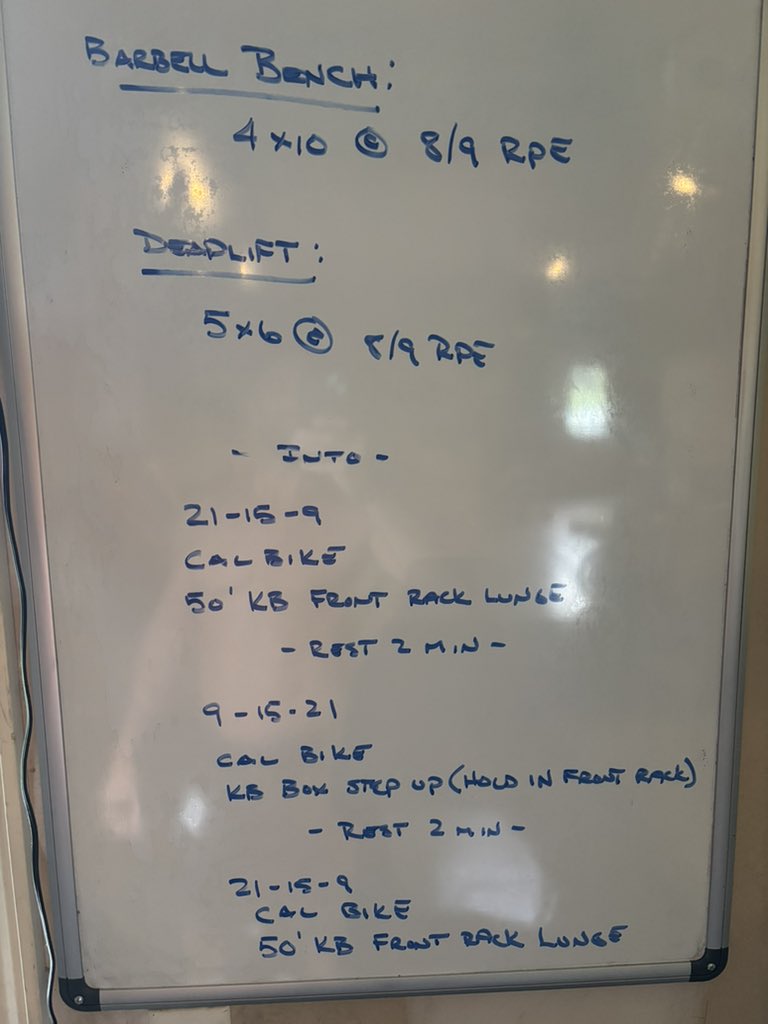 BARBELL BENCH:
4x10 @ 8/9 RPE
DEADLIFT:
5x6 @ 8/9 RPE
- INTO -
21-15-9
CAL BIKE
50' KB FRONT RACK LUNGE
- REST 2 MIN -
9-15-21
CAL BIKE
KB BOX STEP UP (HOLD IN FRONT RACK)
- REST 2 MIN -
21-15-9
CAL BIKE
50' KB FRONT RACK LUNGE